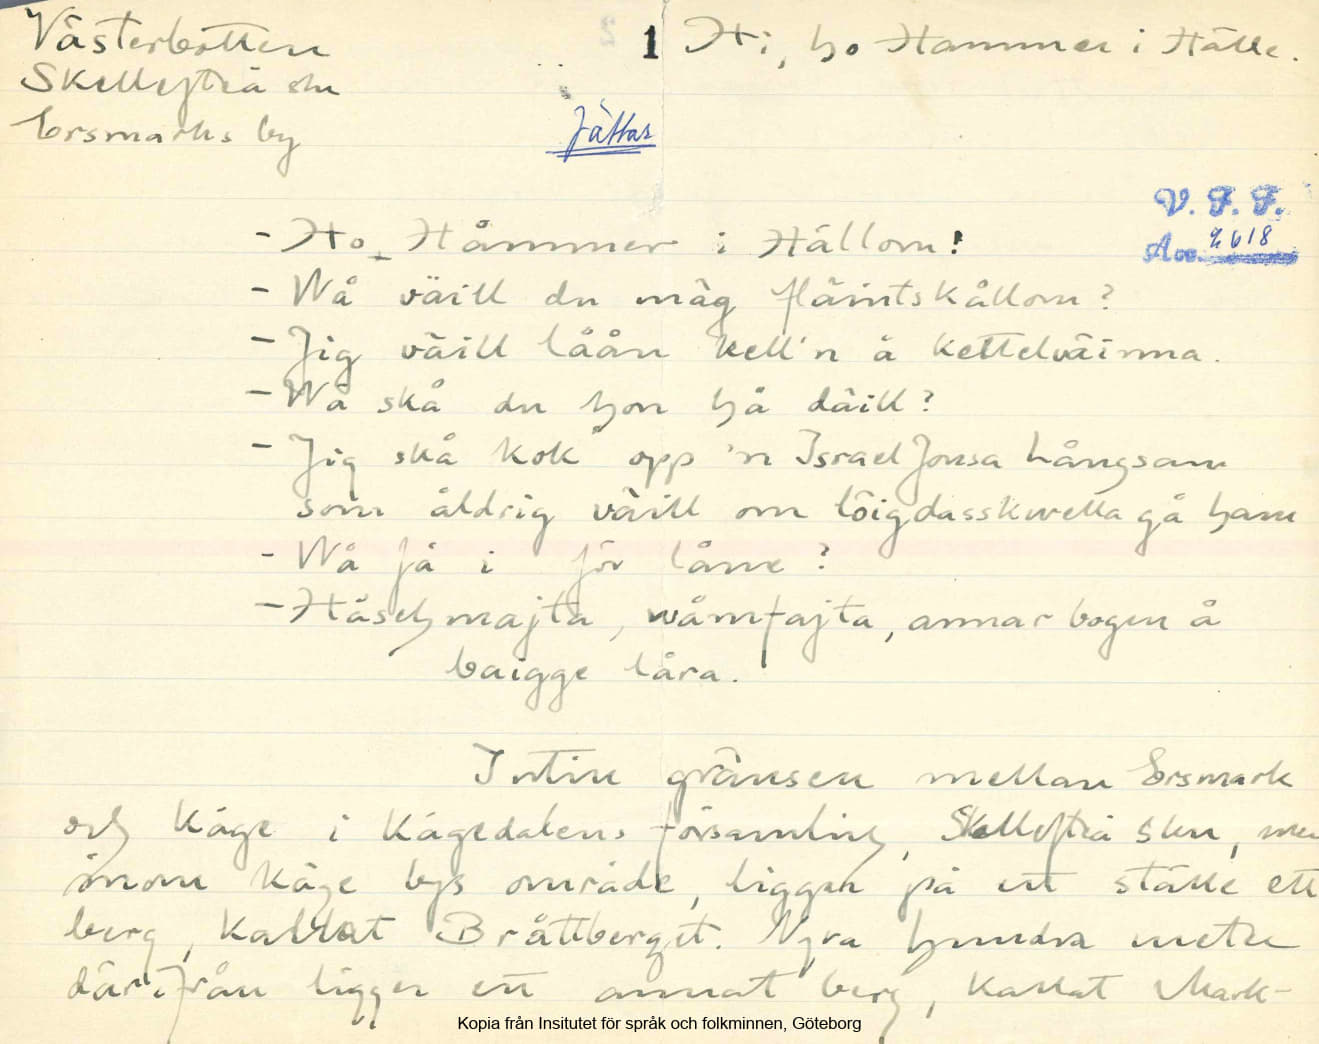 Västerbotten
Skellefteå sn
Ersmarks by
1
Hi, ho Hammer i Hälle.
Jättar
V. F. F.
Acc. 2618
- Ho, Håmmer i Hällom!
- Wå väill du mäg fläintskållom?
- Jig väill låån kell'n å kettelväinna.
- Wå skå du hon hå däill?
- Jig skå kok opp 'n Israel Jonsa långsam
som åldrig väill om löigdasskwella gå ham
- Wå få i för låne?
- Håschmajta, wåmfajta, annar bogen å
baigge låra.
Intill gränsen mellan Ersmark
och Kåge i Kågedalens församling, Skellefteå skn, men
inom Kåge bys område, ligger på ett ställe ett
berg, kallat Bråttberget. Några hundra meter
därifrån ligger ett annat berg, kallat Mark-
Kopia från Insitutet för språk och folkminnen, Göteborg